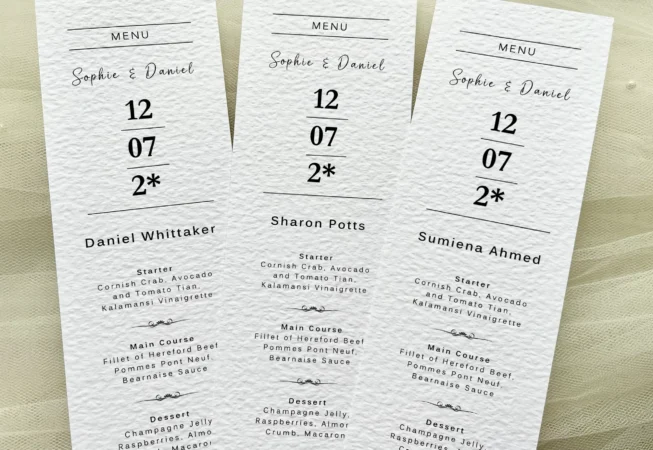 MENU
Sophie & Daniel
12
07
2*
Daniel Whittaker
Starter
Cornish Crab, Avocado
and Tomato Tian,
Kalamansi Vinaigrette
Main Course
Fillet of Hereford Beef
Pommes Pont Neuf,
Bearnaise Sauce
Dessert
Champagne Jelly
Raspberries, Almo
Crumb, Macaro
MENU
Sophie & Daniel
12
07
2*
Sharon Potts
Starter
Cornish Crab, Avocado
and Tomato Tian,
Kalamansi Vinaigrette
Main Course
Fillet of Hereford Beef
Pommes Pont Neuf,
Bearnaise Sauce
Dessert
Champagne Jelly,
Raspberries, Almon
Crumb, Macaron
MENU
Sophie & Daniel
12
07
2*
Sumiena Ahmed
Starter
Cornish Crab, Avocado
and Tomato Tian,
Kalamansi Vinaigrette
Main Course
Fillet of Hereford Beef,
Pommes Pont Neuf,
Bearnaise Sauce
Dessert
Champagne Jelly